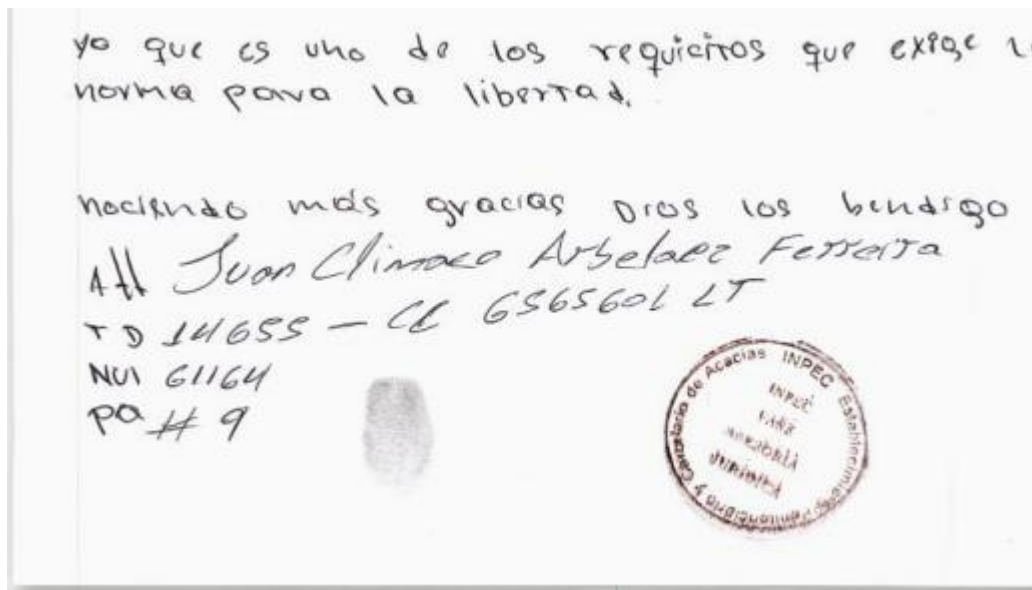 yo que es uno de los requicitos que exige
norma para la libertad.
nociendo más gracias Dios los bendigo
Att Juan Climaco Arbelaez Ferreira
TD 14655 - CC 6565601 LT
NUI 61164
pa # 9
Establecimiento Penitenciario y Carcelario de Acacias INPEC
INPEC
JURIDICA